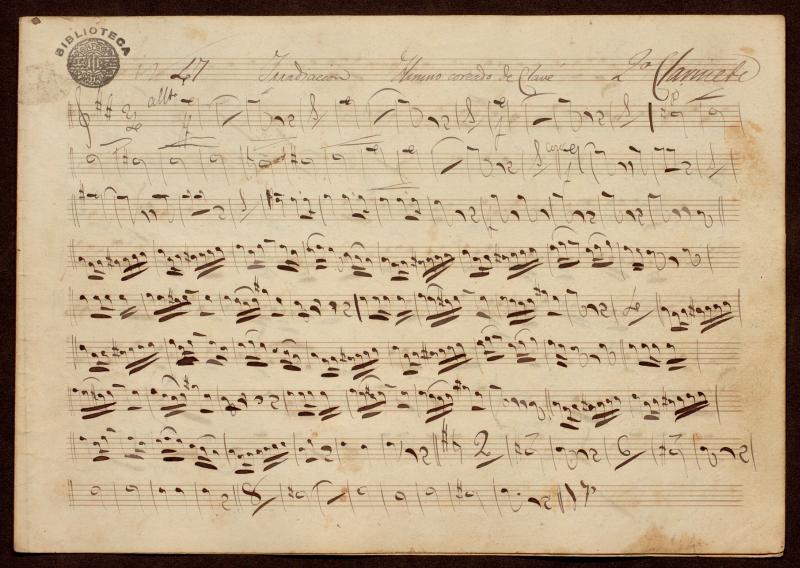 BIBLIOTECA
Nº 47 Irradiacion Himno coreado de Clavé 2º Clarinete
allº
2 6
8